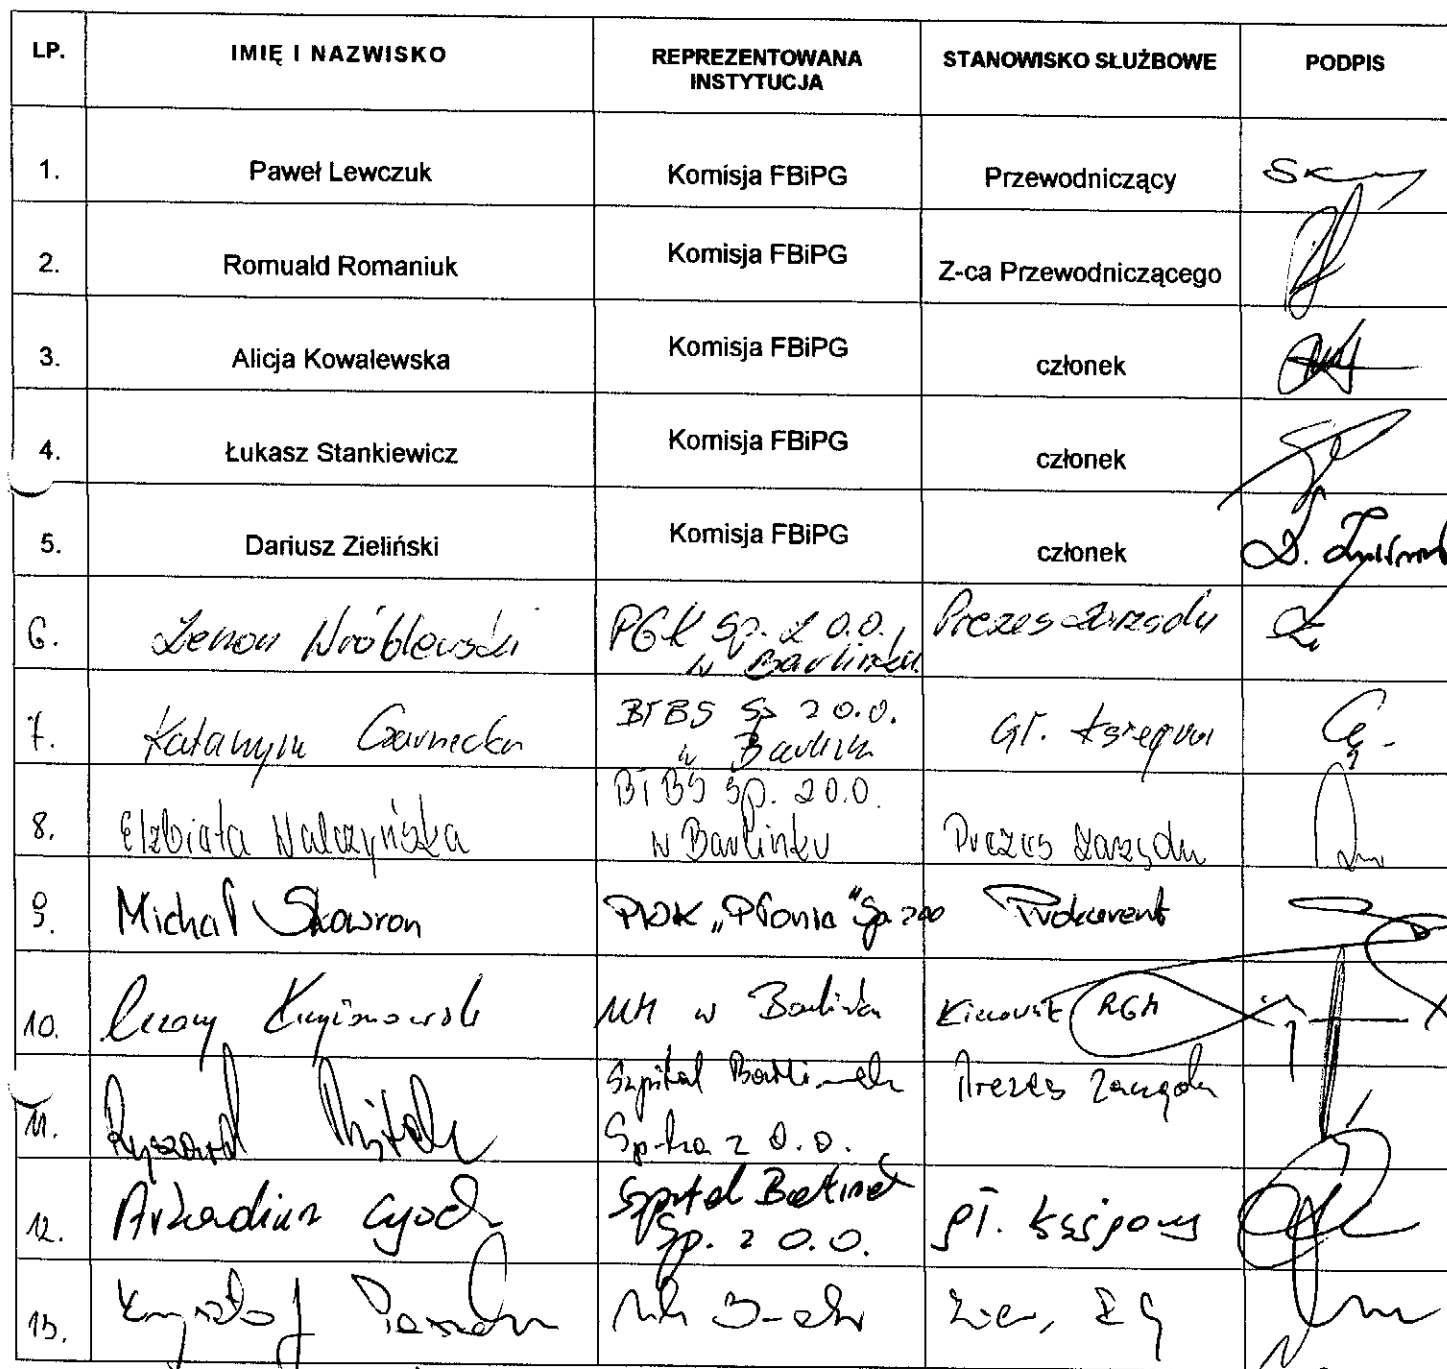 LP. IMIĘ I NAZWISKO REPREZENTOWANA INSTYTUCJA STANOWISKO SŁUŻBOWE PODPIS
1. Paweł Lewczuk Komisja FBiPG Przewodniczący
2. Romuald Romaniuk Komisja FBiPG Z-ca Przewodniczącego
3. Alicja Kowalewska Komisja FBiPG członek
4. Łukasz Stankiewicz Komisja FBiPG członek
5. Dariusz Zieliński Komisja FBiPG członek D.
6. Zenon Wróblewski PGK Sp. z o.o. w Barlinku Prezes Zarządu
7. Katarzyna Czarnecka BTBS Sp z o.o. w Barlinku Gł. księgowa
8. Elżbieta Walczyńska BTBS Sp. z o.o. w Barlinku Prezes Zarządu
9. Michał Skowron PWK „Płonia" Sp. zoo Prokurent
10. Cezary UM w Barlinku Kierownik RGM
11. Ryszard Szpital Barlinek Sp-ka z o.o. Prezes Zarządu
12. Arkadiusz Szpital Barlinek Sp. z o.o. gł. księgowy
13. Krzysztof